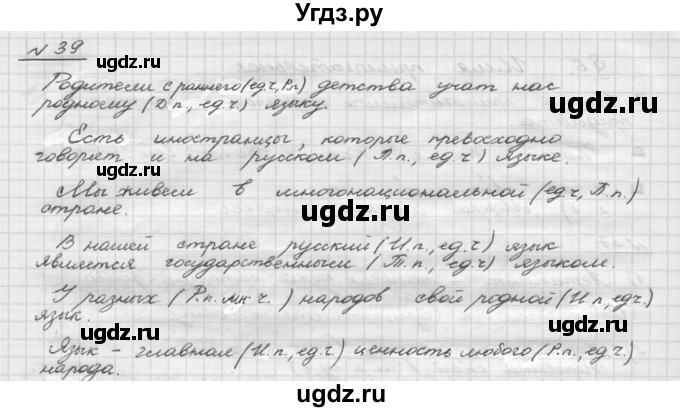 Угдз.ру
№ 39
Родители с раннего (ед.ч, Р.п) детства учат нас
родному (Д.п., ед.ч.) языку.
Есть иностранцы, которые превосходно
говорят и на русском (П.п., ед.ч.) языке.
Мы живем в многонациональной (ед.ч, П.п.)
стране.
В нашей стране русский (И.п., ед.ч.) язык
является государственным (Т.п., ед.ч.) языком.
У разных (Р.п. мн.ч.) народов свой родной (И.п, ед.ч.)
язык.
Язык - главная (И.п., ед.ч.) ценность любого (Р.п., ед.ч.)
народа.
ugdz.ru
ugdz.ru
ugdz.ru
ugdz.ru
ugdz.ru
ugdz.ru
ugdz.ru
ugdz.ru
ugdz.ru
ugdz.ru
ugdz.ru